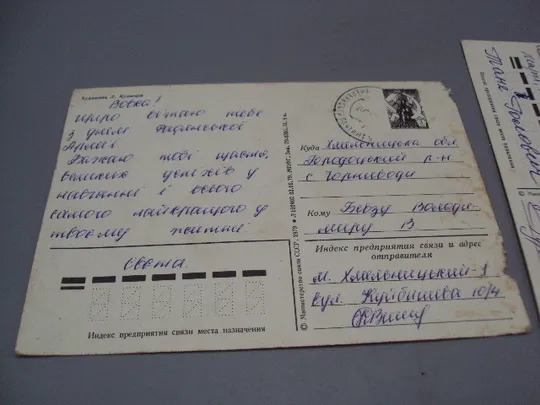 Художник Л. Кузнецов
Вовка!
Щиро вітаю тебе
з днем Радянської
Армії
Бажаю тобі щастя,
великих успіхів у
навчанні і всього
самого найкращого у
твоєму житті
Света.
Индекс предприятия связи места назначения
© Министерство связи СССР, 1979
Куда Хмельницька обл
Городоцький р-н
с Чорниводи
Кому Бевзу Володи-
миру В
Индекс предприятия связи и адрес
отправителя
м. Хмельницький-1
вул. Куйбишева 10/4